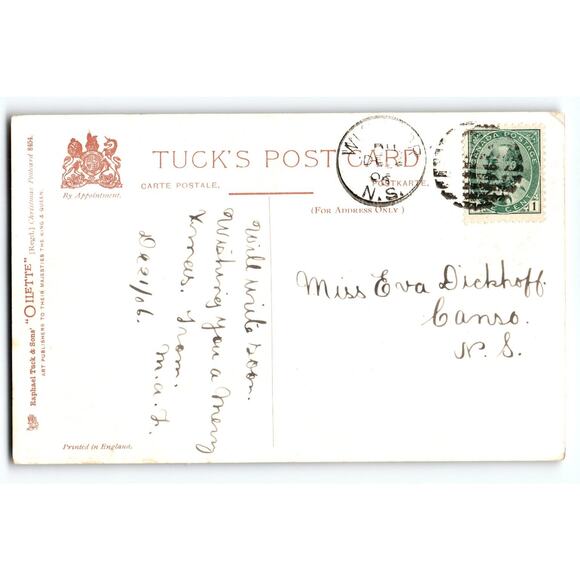 TUCK'S POST CARD
CARTE POSTALE,
POSTKARTE.
(FOR ADDRESS ONLY)
By Appointment.
Raphael Tuck & Sons' "OILETTE" [Regd.] Christmas Postcard 8404.
ART PUBLISHERS TO THEIR MAJESTIES THE KING & QUEEN.
Printed in England.
PM
DE
06
N.S.
CANADA POSTAGE
ONE CENT
1
Will write soon.
Wishing you a Merry
Xmas. From.
M.A.L.
Dec 21/06.
Miss Eva Dickhoff.
Canso.
N.S.